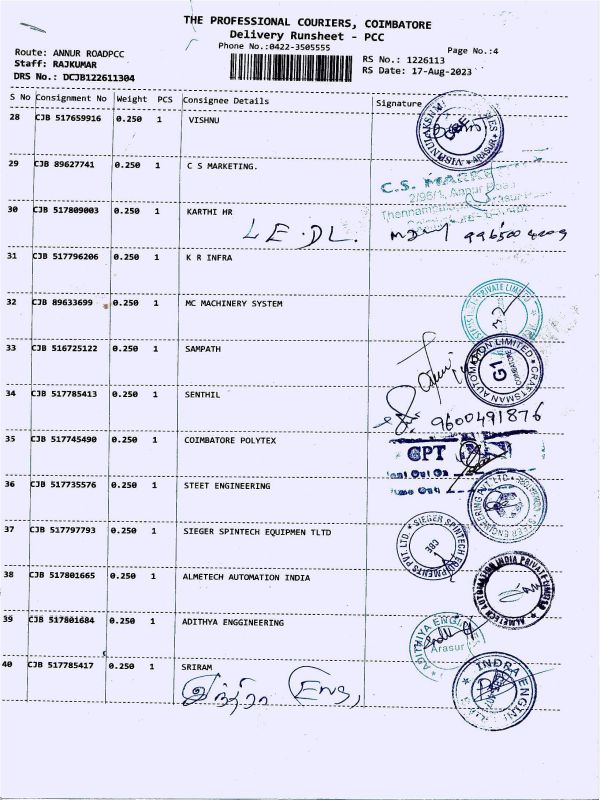 THE PROFESSIONAL COURIERS, COIMBATORE
Delivery Runsheet - PCC
Phone No.:0422-3505555
Page No.:4
Route: ANNUR ROADPCC
Staff: RAJKUMAR
DRS No.: DCJB122611304
RS No.: 1226113
RS Date: 17-Aug-2023
S No Consignment No Weight PCS Consignee Details Signature
28 CJB 517659916 0.250 1 VISHNU
ARASUR
29 CJB 89627741 0.250 1 C S MARKETING.
C.S.
2/96/1, Annur Road
30 CJB 517809003 0.250 1 KARTHI HR
L E . DL.
31 CJB 517796206 0.250 1 K R INFRA
32 CJB 89633699 0.250 1 MC MACHINERY SYSTEM
PRIVATE LIMITED
33 CJB 516725122 0.250 1 SAMPATH
CRAFTSMAN AUTOMATION LIMITED
G1
COIMBATORE
34 CJB 517785413 0.250 1 SENTHIL
9600491876
35 CJB 517745490 0.250 1 COIMBATORE POLYTEX
CPT
36 CJB 517735576 0.250 1 STEET ENGINEERING
SIEGER ENGINEERING PVT LTD
37 CJB 517797793 0.250 1 SIEGER SPINTECH EQUIPMEN TLTD
SIEGER SPINTECH EQUIPMENTS PVT LTD
CBE
38 CJB 517801665 0.250 1 ALMETECH AUTOMATION INDIA
ALMETECH AUTOMATION INDIA PRIVATE LIMITED
39 CJB 517801684 0.250 1 ADITHYA ENGGINEERING
ADITHIYA ENGIN
Arasur
40 CJB 517785417 0.250 1 SRIRAM
இந்திரா Eng,
INDRA ENGIN